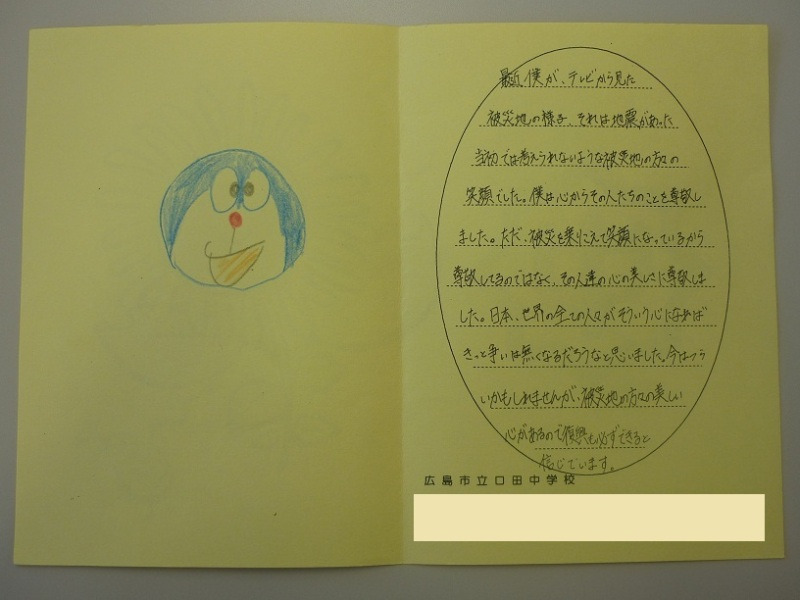 最近僕が、テレビから見た
被災地の様子、それは地震があった
当初では考えられないような被災地の方々の
笑顔でした。僕は心からその人たちのことを尊敬し
ました。ただ、被災を乗りこえて笑顔になっているから
尊敬してるのではなく、その人達の心の美しさに尊敬しま
した。日本、世界の全ての人々がそういう心になれば
きっと争いは無くなるだろうなと思いました。今はつら
いかもしれませんが、被災地の方々の美しい
心があるので復興も必ずできると
信じています。
広島市立口田中学校